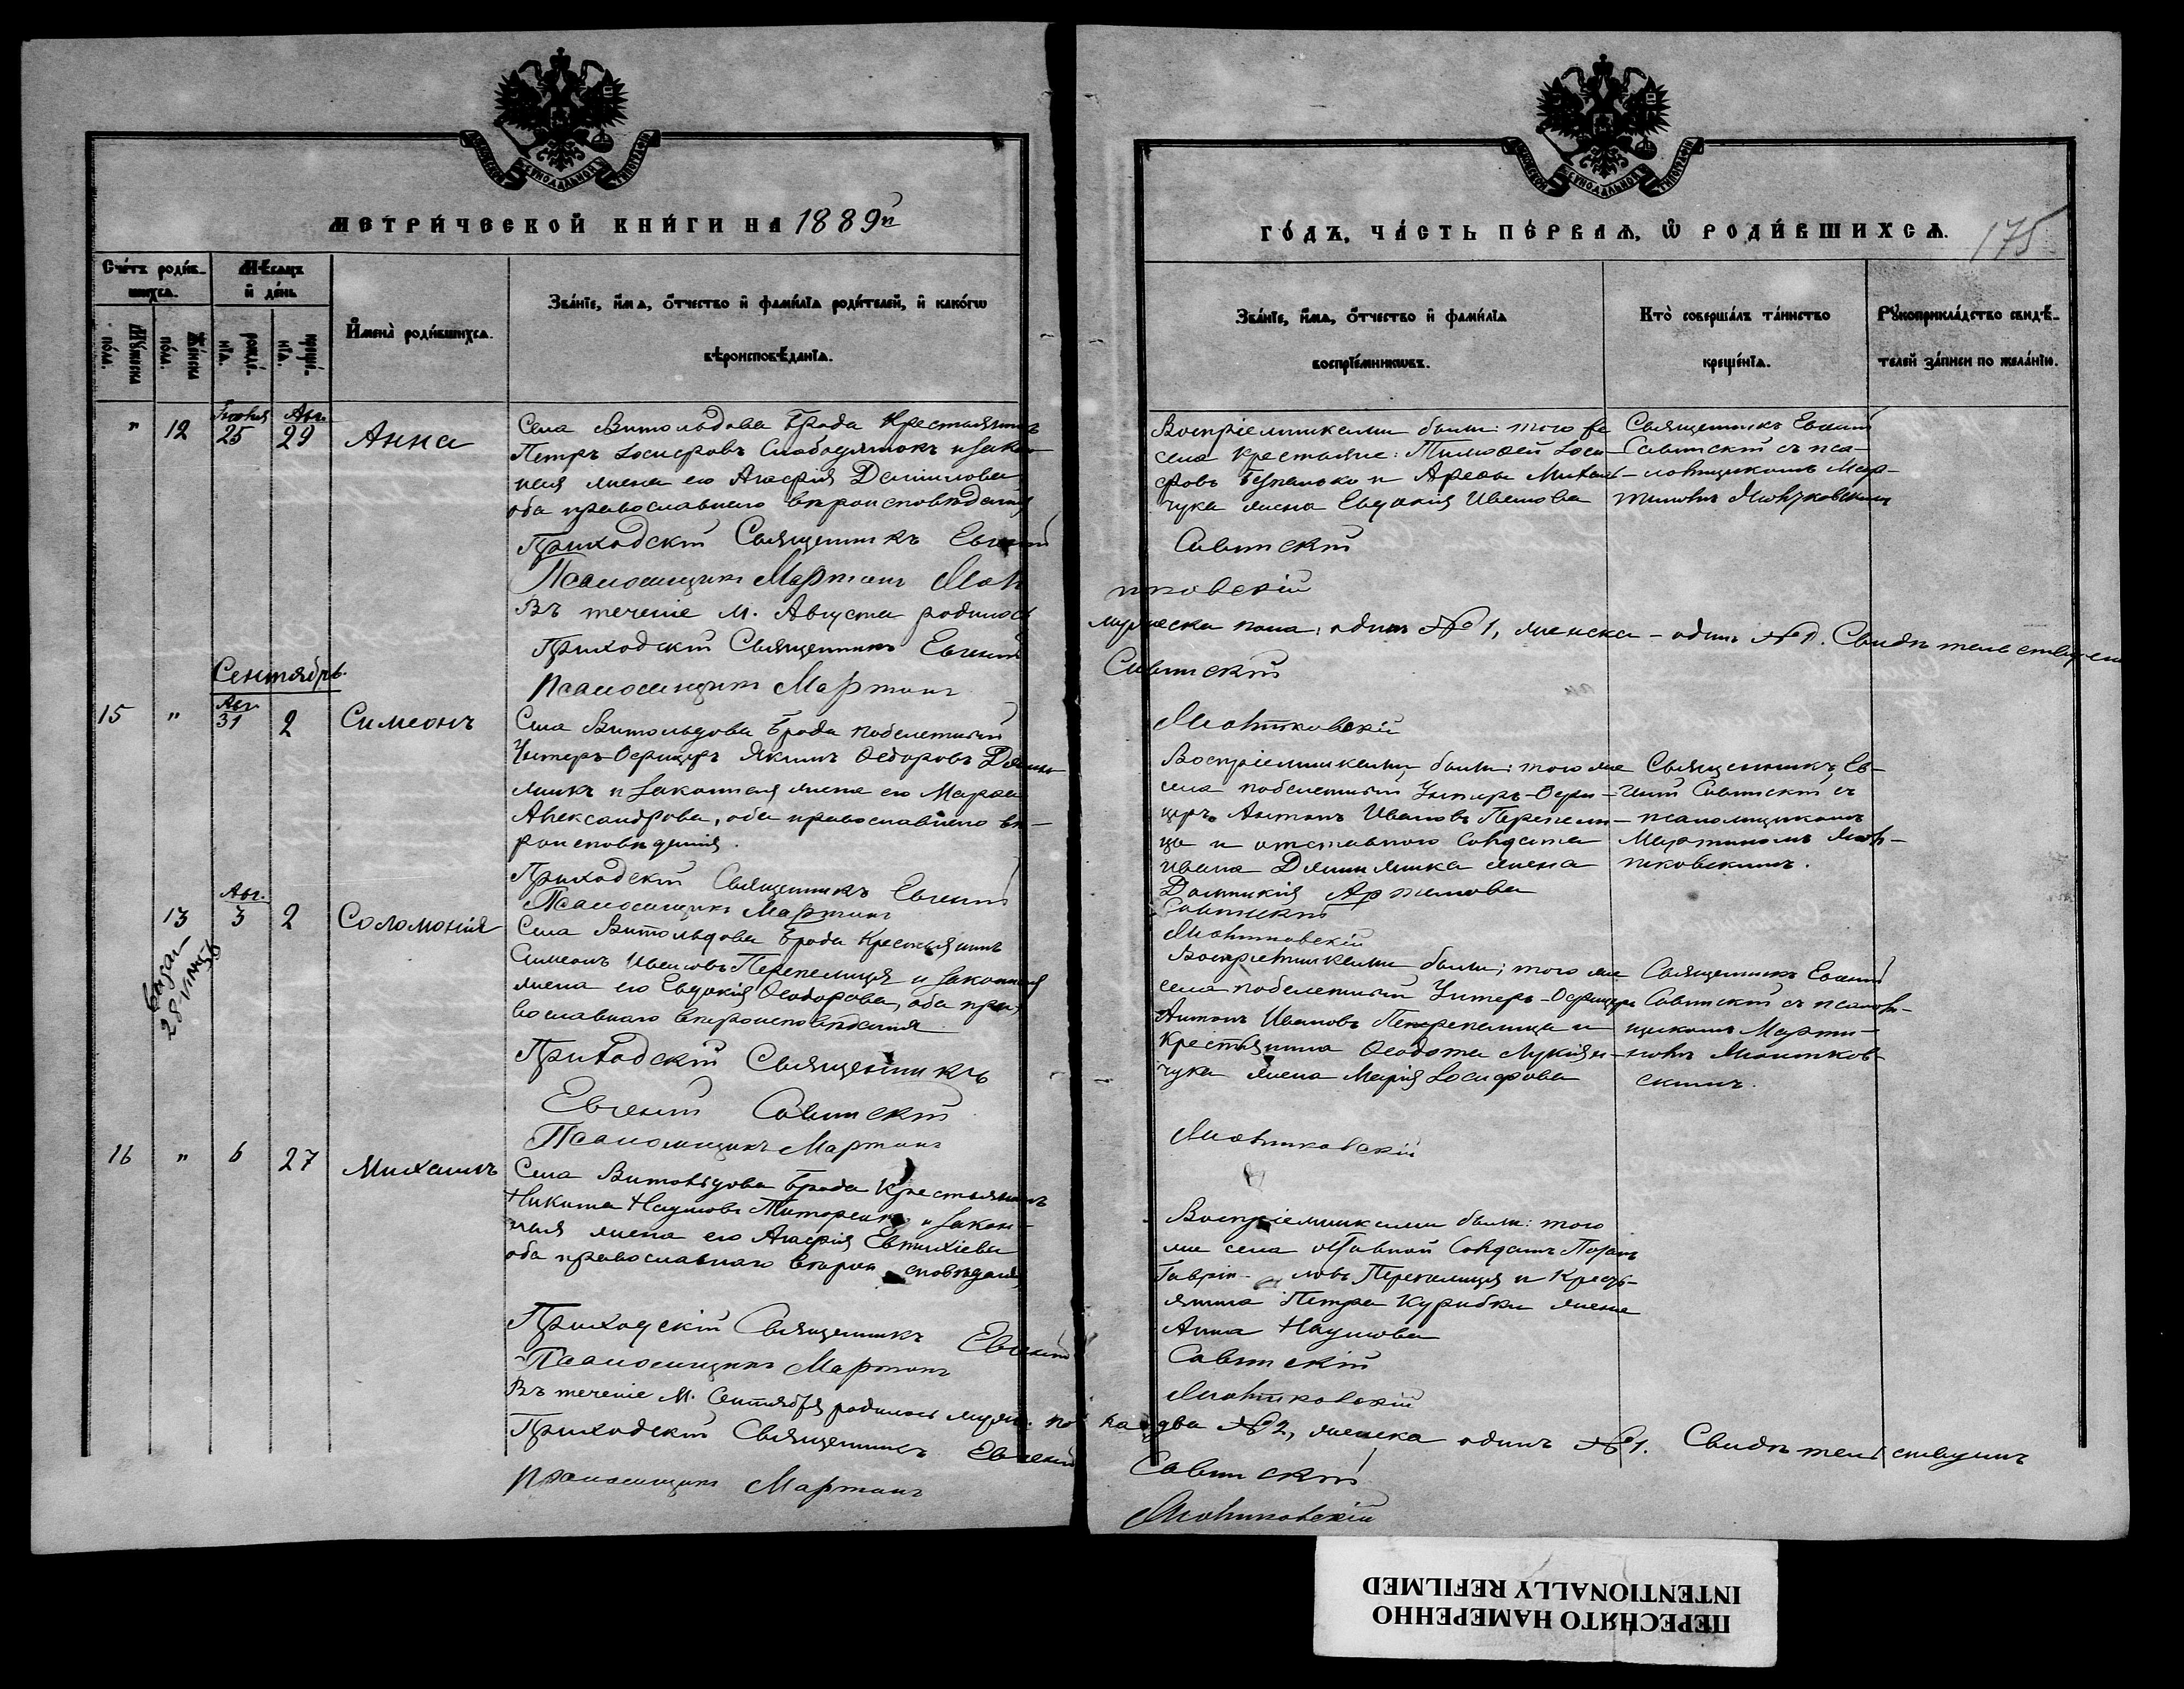 МЕТРИ́ЧЕСКОЙ КНИ́ГИ НА 1889й
Сче́тъ роди́в-
шихсѧ.
Мꙋ́жеска по́ла.
Же́нска по́ла.
Мѣ́сѧцъ
и҆ де́нь
рожде́-
нїѧ.
креще́-
нїѧ.
И҆мена̀ роди́вшихсѧ.
Зва́нїе, и҆́мѧ, ѻ҆́тчество и҆ фами́лїѧ роди́телей, и҆ како́гѡ
вѣроисповѣ́данїѧ.
" 12 25 Авг. 29 Анна
Села Витольдова Брода Крестьянинъ
Петръ Іосифовъ Слободянюкъ и закон-
ная жена его Агафія Даниилова
оба православнаго вѣроисповѣданія
Приходскій Священникъ Евгеній
Псаломщикъ Мартинъ
Въ теченіе М. Августа родилось
Приходскій Священникъ Евгеній
Псаломщикъ Мартинъ
Сентябрь.
15 " Авг. 31 2 Симеонъ
Села Витольдова Брода побелетный
Унтеръ-Офицеръ Якимъ Ѳедоровъ
и законная жена его Марѳа
Александрова, оба православнаго вѣ-
роисповѣданія.
Приходскій Священникъ Евгеній
Псаломщикъ Мартинъ
13 Авг. 3 2 Соломонія
28
Села Витольдова Брода Крестьянинъ
Симеонъ Ивановъ Перепелиця и законная
жена его Евдокія Ѳеодорова, оба пра-
вославнаго вѣроисповѣданія
Приходскій Священникъ
Евгеній Савинскій
Псаломщикъ Мартинъ
16 " 6 27 Михаилъ
Села Витольдова Брода Крестьянинъ
Никита Наумовъ и закон-
ная жена его Агафія Евтихіева
оба православнаго вѣроисповѣданія
Приходскій Священникъ Евгеній
Псаломщикъ Мартинъ
Въ теченіе М. Сентября родилось муж. по
Приходскій Священникъ Евгеній
Псаломщикъ Мартинъ
ГО́ДЪ, ЧА́СТЬ ПЕ́РВАѦ, Ѽ РОДИ́ВШИХСѦ. 175
Зва́нїе, и҆́мѧ, ѻ҆́тчество и҆ фами́лїѧ
воспрїе́мникѡвъ.
Кто̀ соверша́лъ та́инство
креще́нїѧ.
Рꙋкоприкла́дство свидѣ́-
телей за́писи по жела́нїю.
Воспріемниками были: того же
села крестьяне: Тимоѳей Іоси-
фовъ и Арефы Михаль-
чука жена Евдокія Иванова
Священникъ Евгеній
Савинскій съ пса-
ломщикомъ Мар-
тиномъ
Савинскій
мужеска пола, одинъ №1, женска – одинъ №1.
Савинскій
Воспріемниками были: того же
села побелетный Унтеръ-Офи-
церъ Антонъ Ивановъ Перепели-
ца и отставного Солдата
Ивана жена
Домникія
Священникъ Ев-
геній Савинскій съ
псаломщикомъ
Мартиномъ
Савинскій
Воспріемниками были; того же
села побелетный Унтеръ-Офицеръ
Антонъ Ивановъ Перепелица и
Крестьянина Ѳеодота Лукіян-
чука жена Марія Іосифова
Священникъ Евгеній
Савинскій съ псалом-
щикомъ Марти-
номъ
скимъ.
Воспріемниками были: того
же села Солдатъ
Гаврі- ловъ Перепелиця и Кресть-
янина Петра жена
Анна Наумова
Савинскій
ла два №2, женска одинъ №1. Свидѣтельствуютъ
Савинскій
ПЕРЕСНЯТО НАМЕРЕННО
INTENTIONALLY REFILMED